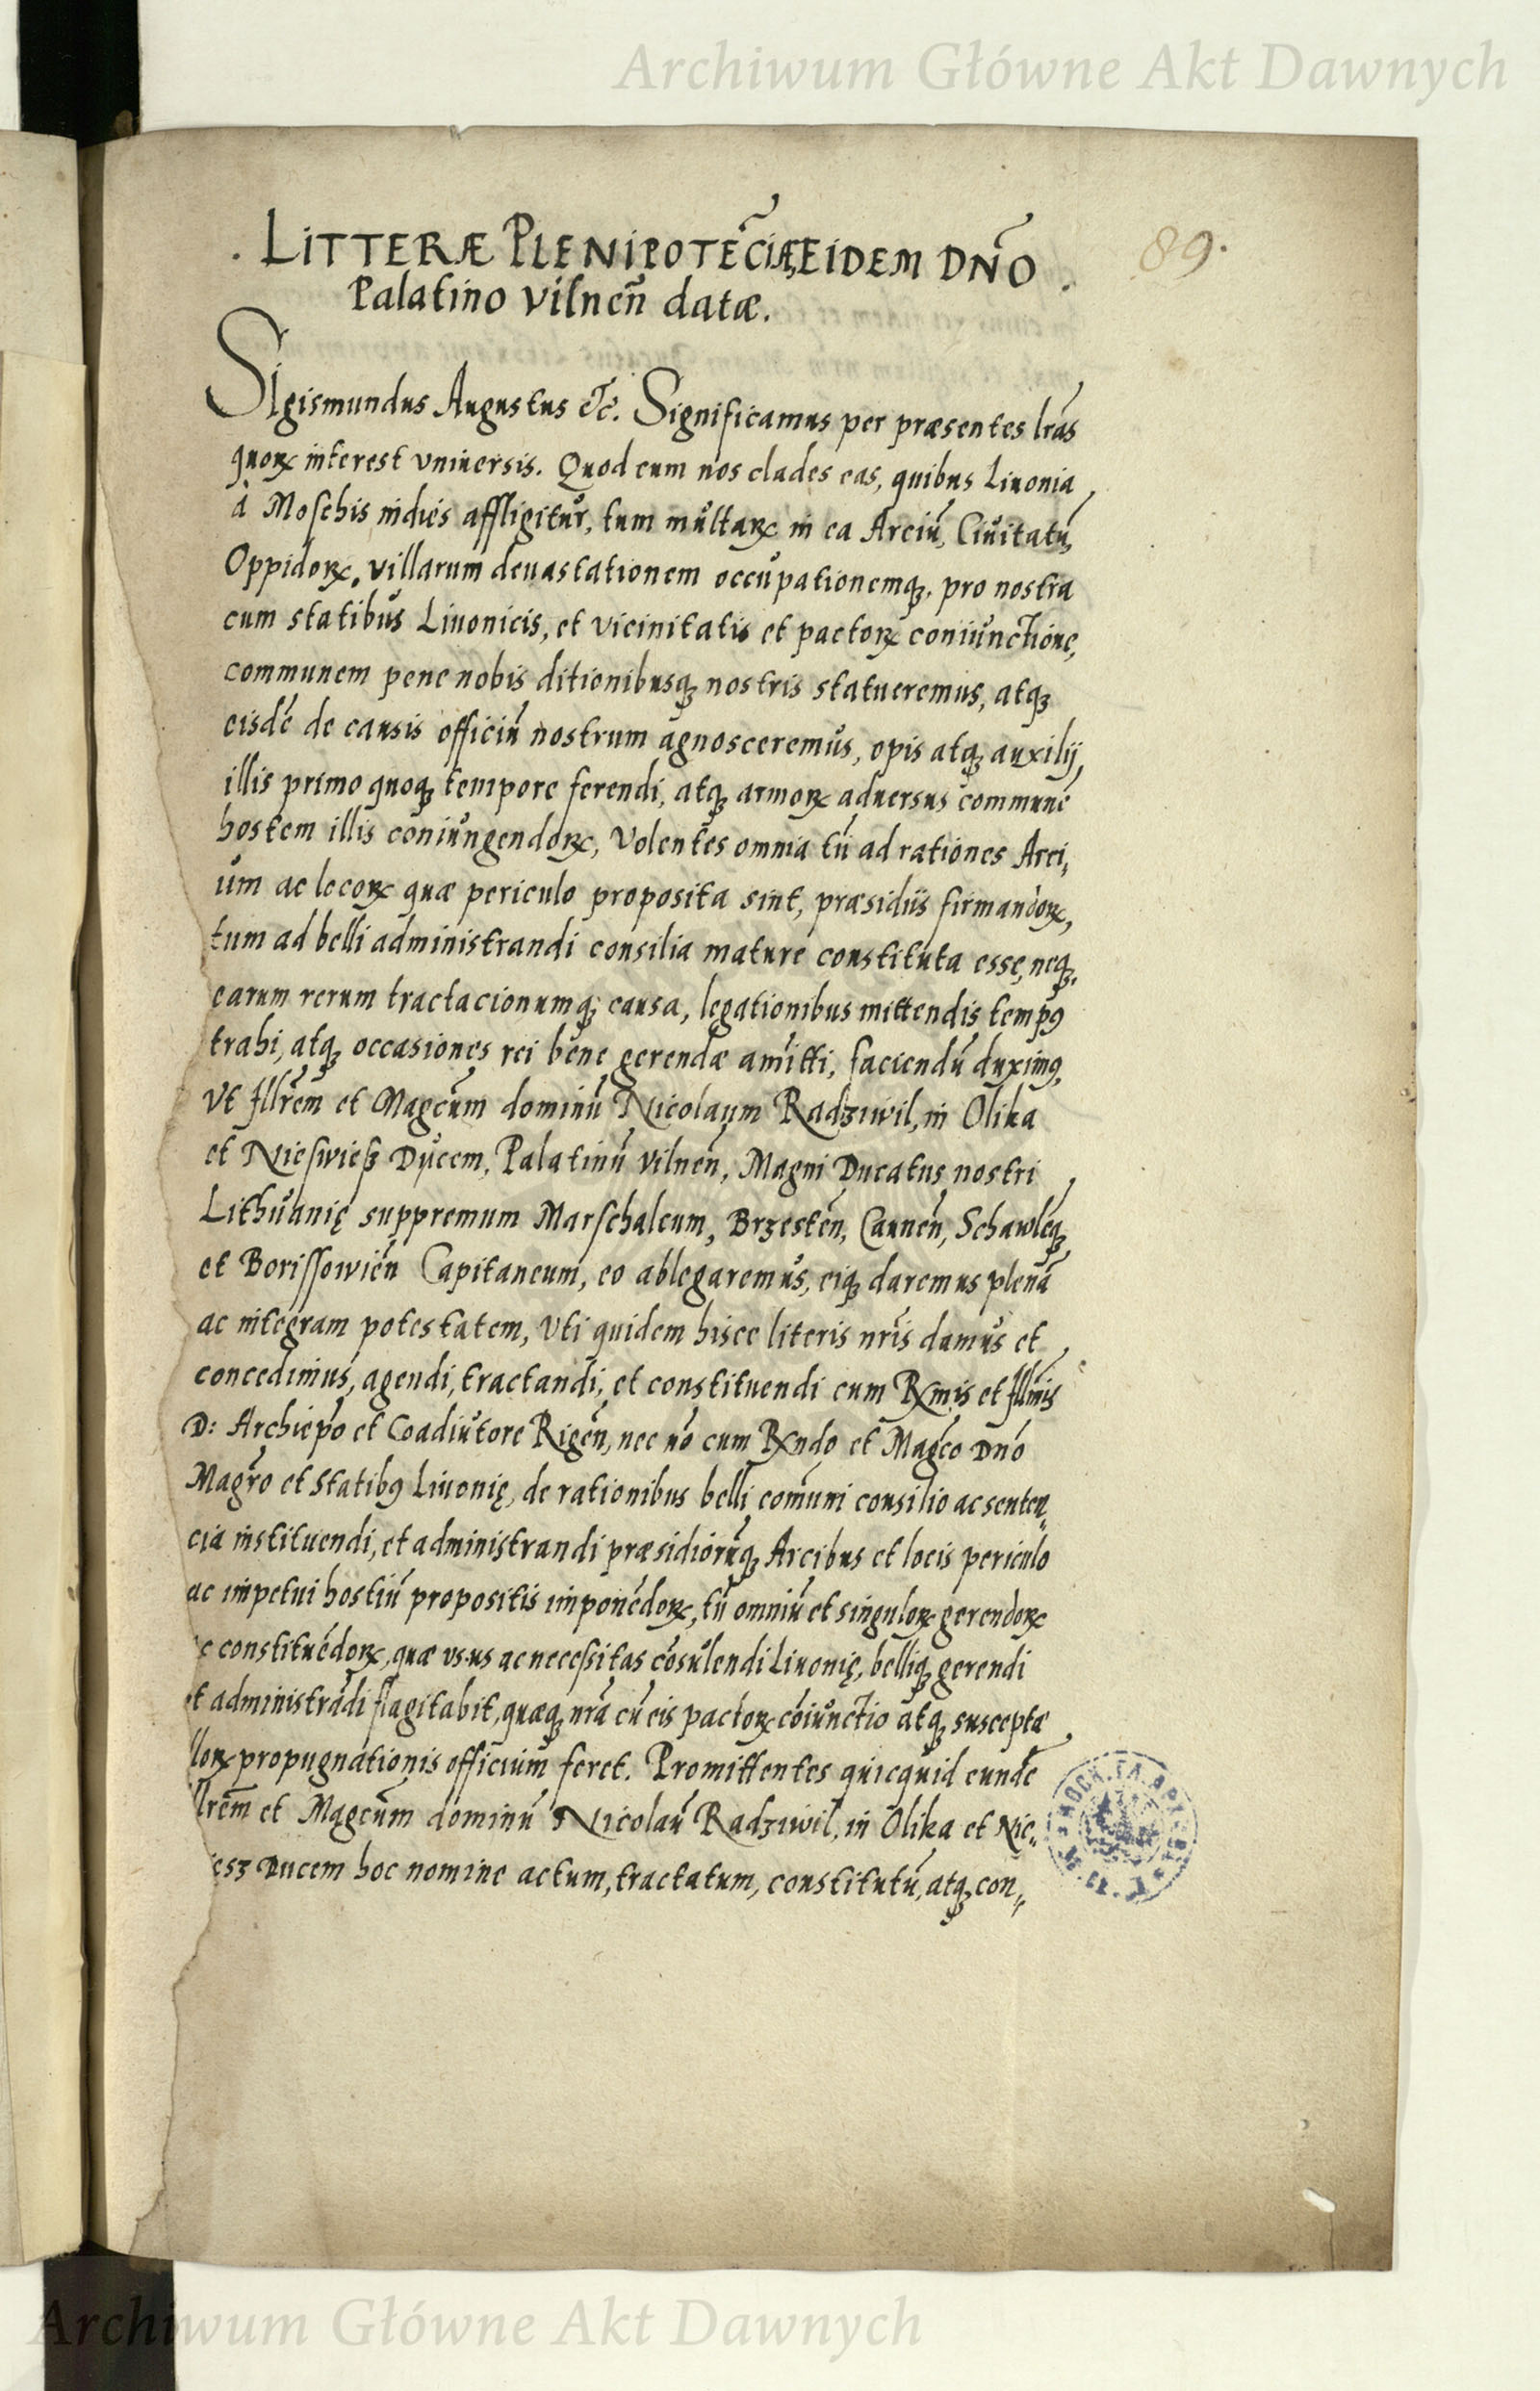 Archiwum Główne Akt Dawnych
89.
. LITTERÆ PLENIPOTE͂CIÆ EIDEM DN͂O .
Palatino Vilneñ datæ.
Sigismundus Augustus &c. Significamus per præsentes lr̃as
quorꝝ interest vniuersis. Quod cum nos clades eas, quibus Liuonia
à Moschis indies affligitur, tum multarꝝ in ea Arciũ, Ciuitatũ,
Oppidorꝝ, villarum deuastationem occupationemq́ꝫ, pro nostra
cum statibus Liuonicis, et vicinitatis et pactorꝝ coniunctione,
communem pene nobis ditionibusqꝫ nostris statueremus, atqꝫ
eisdẽ de causis officiũ nostrum agnosceremus, opis atqꝫ auxilij,
illis primo quoqꝫ tempore ferendi, atqꝫ armorꝝ aduersus communẽ
hostem illis coniungendorꝝ, Volentes omnia tũ ad rationes Arci,
um ac locorꝝ quæ periculo proposita sint, præsidiis firmandorꝝ,
tum ad belli administrandi consilia mature constituta esse, neqꝫ
earum rerum tractacionumqꝫ causa, legationibus mittendis tempꝯ
trahi, atqꝫ occasiones rei bene gerendæ amitti, faciendũ duximꝯ,
Vt Illr̃em et Magcũm dominũ Nicolaum Radziwil, in Olika
et Nieswieß Ducem, Palatinũ Vilneñ, Magni Ducatus nostri
Lithuanię suppremum Marschalcum, Brzesteñ, Cauneñ, Schawleñqꝫ
et Borissowieñ Capitaneum, eo ablegaremus, eiqꝫ daremus plenã
ac integram potestatem, Vti quidem hisce literis nr̃is damus et
concedimus, agendi, tractandi, et constituendi cum Rx̃mis et Illm̃is
D: Archiep̃o et Coadiutore Rigeñ, nec nõ cum Rx̃ndo et Magc̃o Dn̄o
Magr̃o et Statibꝯ Liuonię, de rationibus belli com̃uni consilio ac senten„
cia instituendi, et administrandi præsidiorũqꝫ Arcibus et locis periculo
ac impetui hostiũ propositis imponẽdorꝝ, tũ omniũ et singulorꝝ gerendorꝝ
c constituẽdorꝝ, quæ vsus ac necessitas cõsulendi Liuonię, belliqꝫ gerendi
et administrãdi flagitabit, quæqꝫ nr̃a cũ eis pactorꝝ cõiunctio atqꝫ susceptæ
llorꝝ propugnationis officium feret. Promittentes quicquid eundẽ
lr̃em et Magcũm dominũ Nicolaũ Radziwil, in Olika et Nie„
iesz Ducem hoc nomine actum, tractatum, constitutũ, atqꝫ con„
Archiwum Główne Akt Dawnych